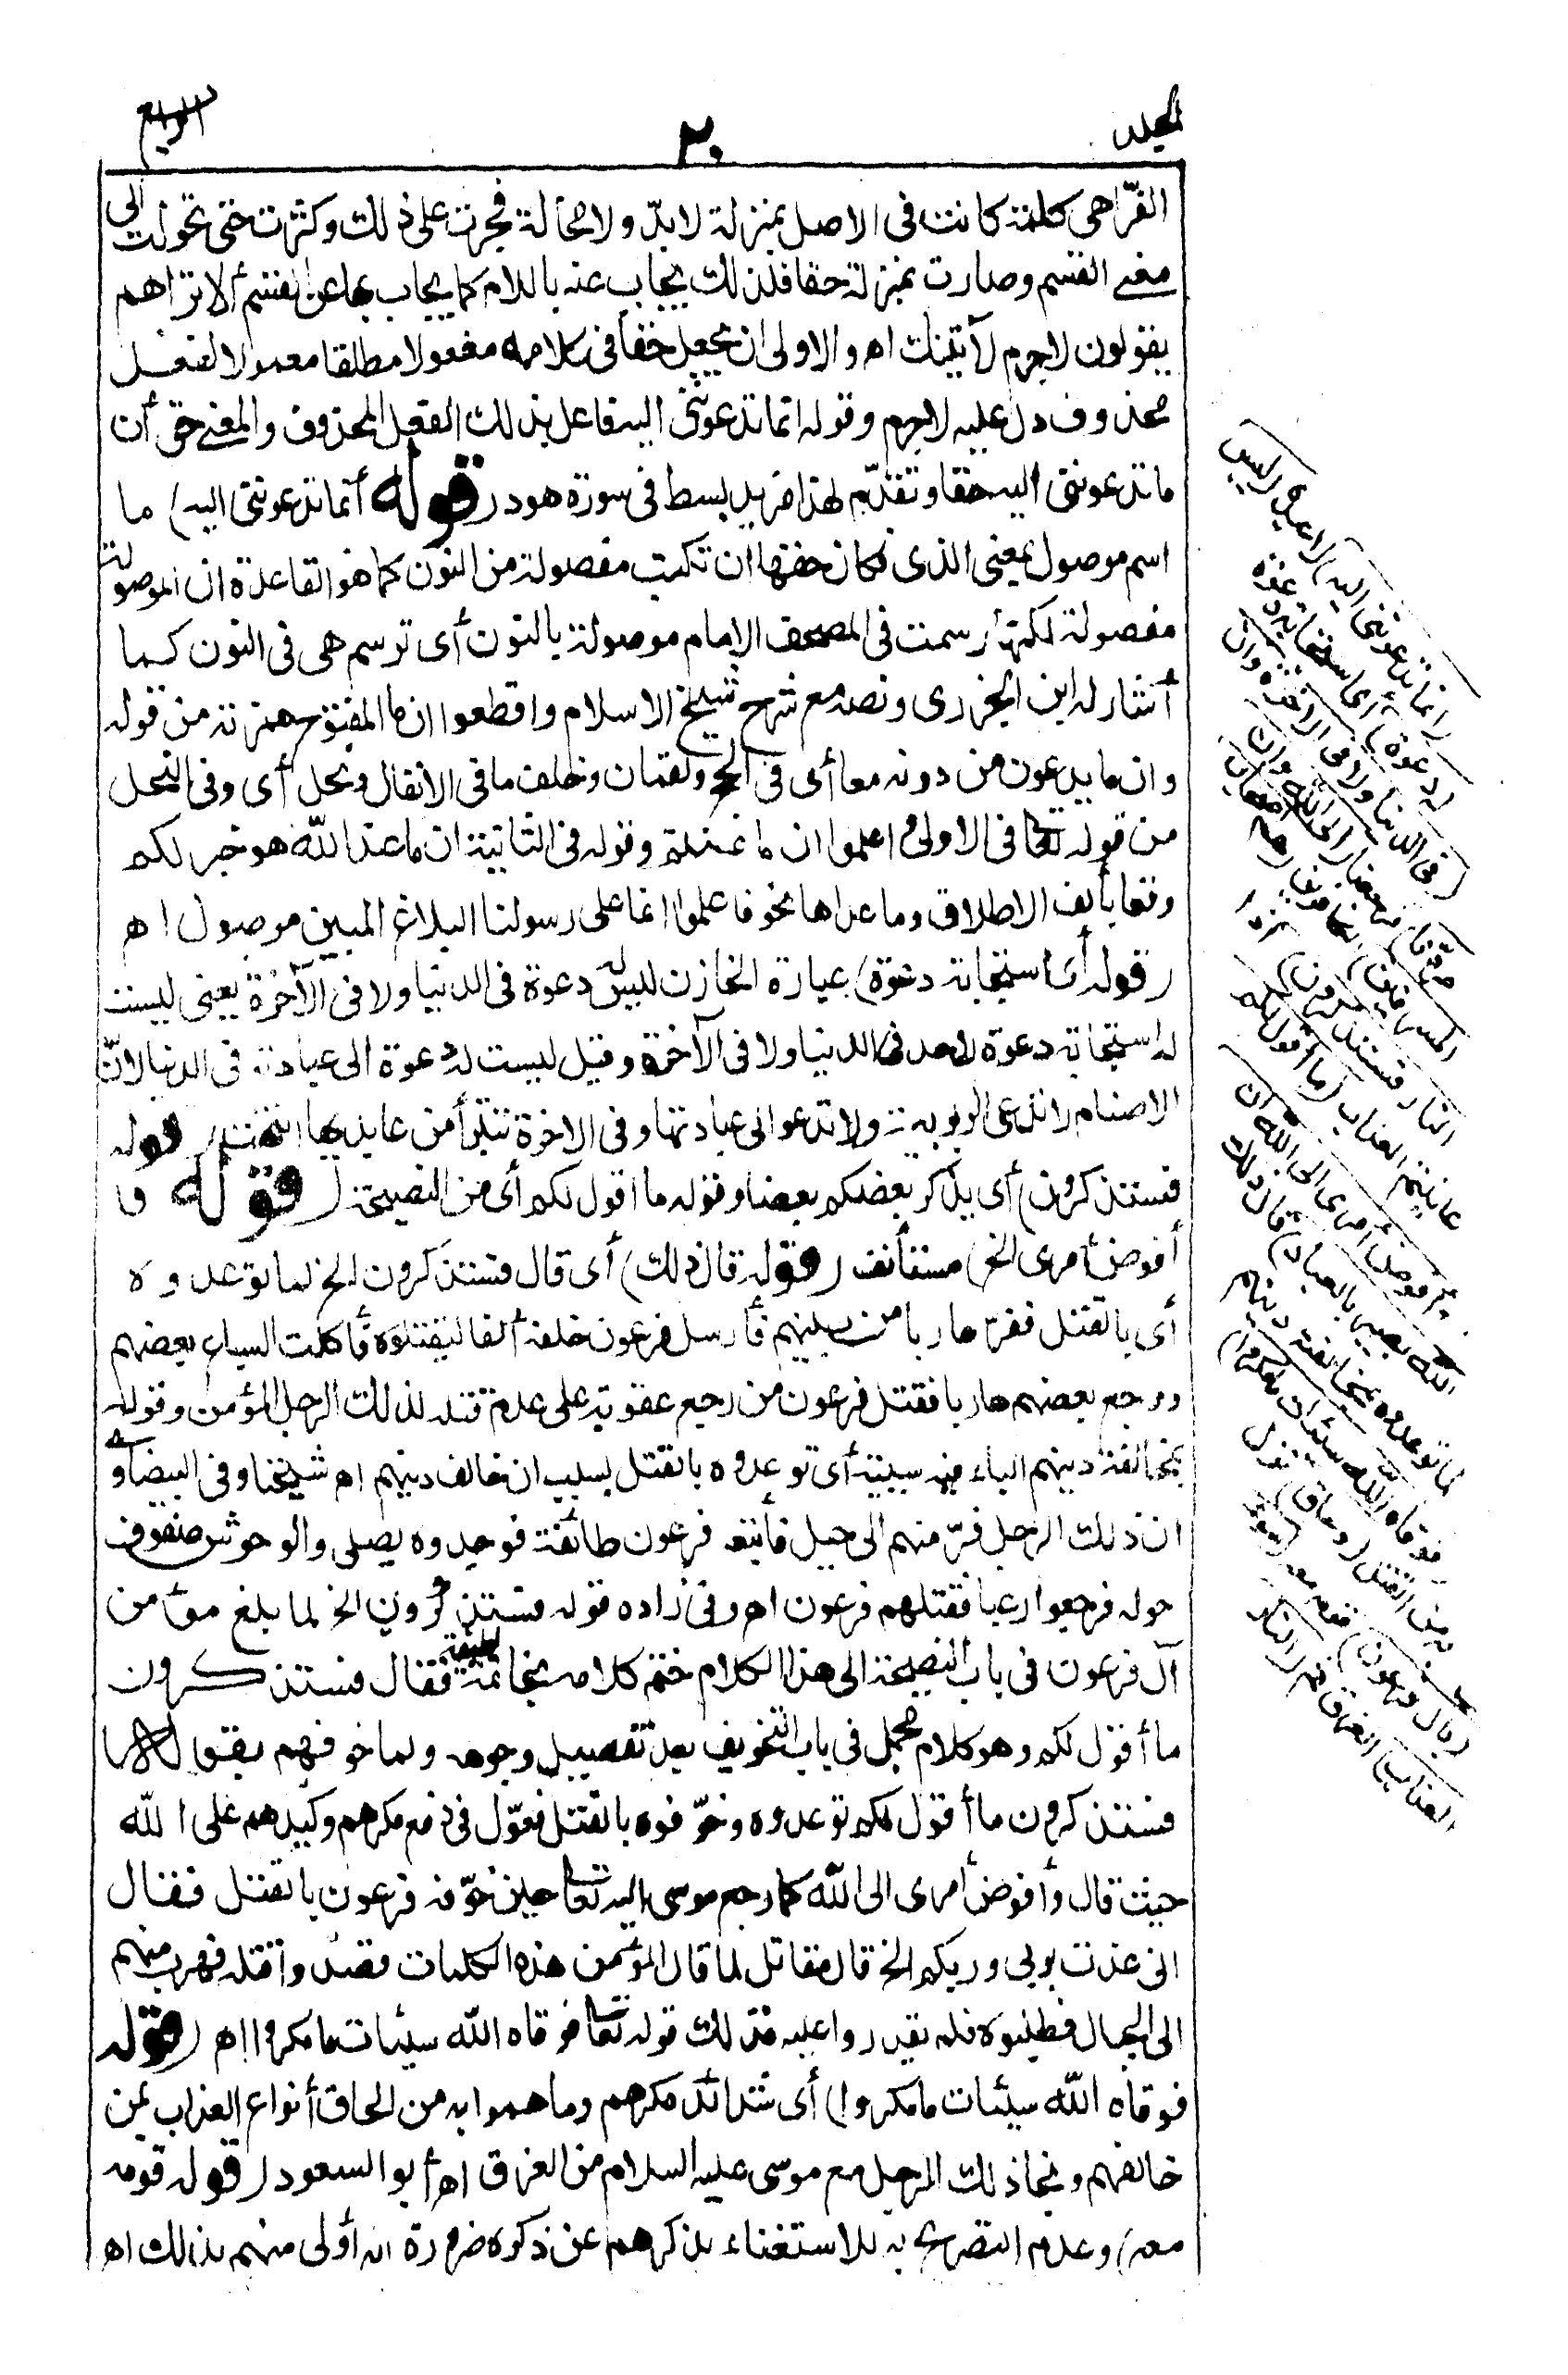 المجلد
٢٠
الرابع
الفرّاهى كلمة كانت فى الاصل بمنزلة لابدّ ولا محالة فجرت على ذلك وكثرت حتى تحولت الى
معنى القسم وصارت بمنزلة حقا فلذلك يجاب عنه باللام كما يجاب بها عن القسم ألا تراهم
يقولون لاجرم لآتينك اه والاولى ان يجعل حقا فى كلامه مفعولا مطلقا معمولا لفعل
محذوف دل عليه لاجرم وقوله انما تدعوننى اليه فاعل بذلك الفعل المحذوف والمعنى حق أن
ما تدعوننى اليه حقا وتقدّم لهذا مزيد بسط فى سورة هود (قوله أنما تدعوننى اليه) ما
اسم موصول بمعنى الذى فكان حقها ان تكتب مفصولة من النون كما هو القاعدة ان الموصولة
مفصولة لكنها رسمت فى المصحف الامام موصولة بالنون أى ترسم هى فى النون كما
أشار له ابن الجزرى ونصه مع شرح شيخ الاسلام واقطعوا ان ما المفتوح همزته من قوله
وان ما يدعون من دونه معا أى فى الحج ولقمان وخلف ما فى الانفال ونحل أى وفى النحل
من قوله تعالى فى الاولى اعلموا ان ما غنمتم وقوله فى الثانية ان ما عند الله هو خير لكم
وقعا بألف الاطلاق وما عداها نحو فاعلموا انما على رسولنا البلاغ المبين موصول اه
(قوله أى استجابة دعوة) عبارة الخازن ليس له دعوة فى الدنيا ولا فى الآخرة يعنى ليست
له استجابة دعوة لاحد فى الدنيا ولا فى الآخرة وقيل ليست له دعوة الى عبادته فى الدنيا لانّ
الاصنام لا تدعى الربوبية ولا تدعو الى عبادتها وفى الاخرة تتبرأ من عابديها انتهت (قوله
فستذكرون) أى يذكر بعضكم بعضا وقوله ما أقول لكم أى من النصيحة (قوله و
أفوض أمرى الخ) مستأنف (قوله قال ذلك) أى قال فستذكرون الخ لما توعدوه
أى بالقتل ففرّ هاربا من بينهم فأرسل فرعون خلفه ألفا ليقتلوه فأكلت السباع بعضهم
ورجع بعضهم هاربا فقتل فرعون من رجع عقوبة على عدم قتله لذلك الرجل المؤمن وقوله
بمخالفة دينهم الباء فيه سببية أى توعدوه بالقتل بسبب ان خالف دينهم اه شيخنا وفى البيضاوى
ان ذلك الرجل فرّ منهم الى جبل فأتبعه فرعون طائفة فوجدوه يصلى والوحوش صفوف
حوله فرجعوا رعبا فقتلهم فرعون اه وفى زاده قوله فستذكرون الخ لما بلغ مؤمن
آل فرعون فى باب النصيحة الى هذا الكلام ختم كلامه بخاتمة لطيفة فقال فستذكرون
ما أقول لكم وهو كلام مجمل فى باب التخويف بعد تفصيل وجوهه ولما خوفهم بقوله
فستذكرون ما أقول لكم توعدوه وخوّفوه بالقتل فعوّل فى دفع مكرهم وكيدهم على الله
حيث قال وأفوض أمرى الى الله كما رجع موسى اليه تعالى حين خوّفه فرعون بالقتل فقال
انى عذت بربى وربكم الخ قال مقاتل لما قال المؤمن هذه الكلمات قصدوا قتله فهرب منهم
الى الجبال فطلبوه فلم يقدروا عليه فذلك قوله تعالى فوقاه الله سيئات ما مكروا اه (قوله
فوقاه الله سيئات ما مكروا) أى شدائد مكرهم وما هموا به من الحاق أنواع العذاب بمن
خالفهم ونجا ذلك الرجل مع موسى عليه السلام من الغرق اه أبو السعود (قوله قومه
معه) وعدم التصريح به للاستغناء بذكرهم عن ذكره ضرورة انه أولى منهم بذلك اه
(انما تدعوننى اليه) لاعبده (ليس
له دعوة) أى استجابة دعوة
(فى الدنيا ولا فى الاخرة وان
مردّنا) مرجعنا (الى الله وان
المسرفين) الكافرين (هم أصحاب
النار فستذكرون) اذا
عاينتم العذاب (ما أقول لكم
وأفوض أمرى الى الله ان
الله بصير بالعباد) قال ذلك
لما توعدوه بمخالفة دينهم
(فوقاه الله سيئات ما مكروا)
به من القتل (وحاق) نزل
(بآل فرعون) قومه معه (سوء
العذاب) الغرق ثم (النار